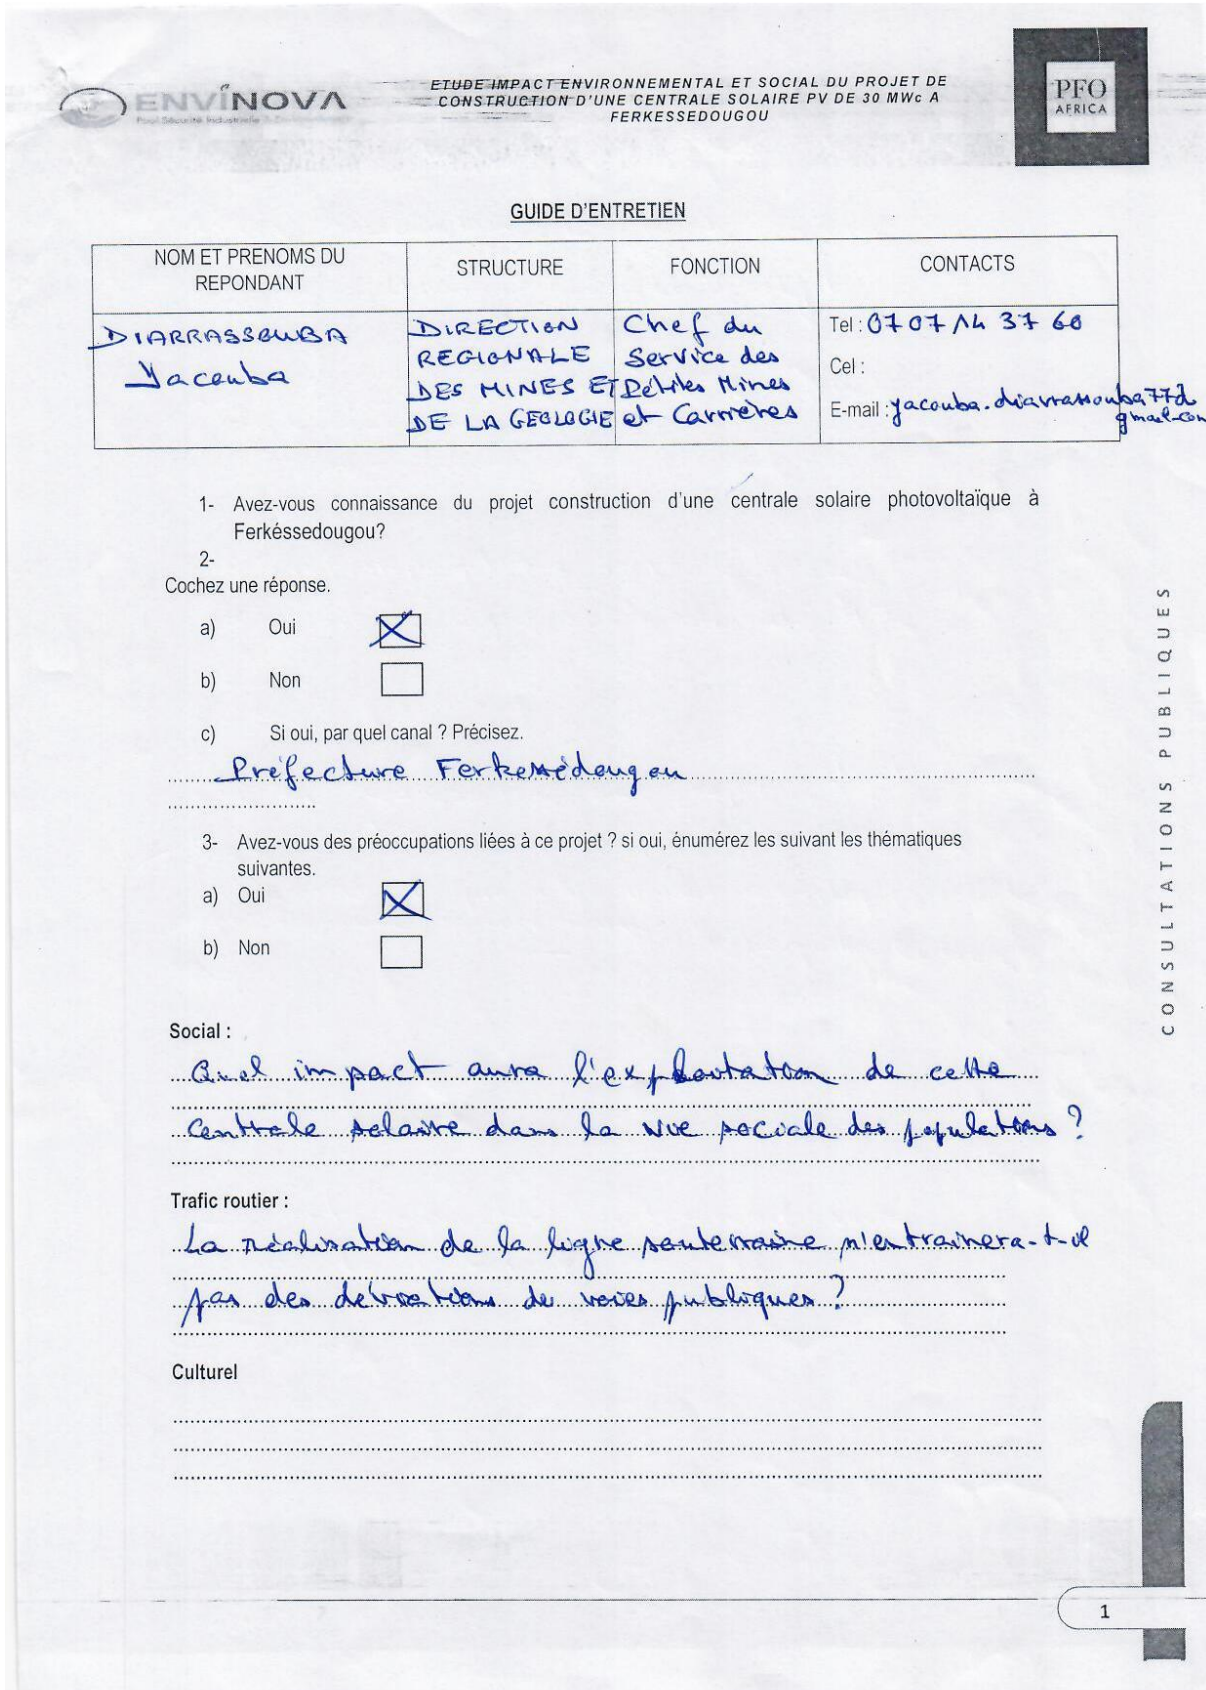 ENVINOVA
ETUDE IMPACT ENVIRONNEMENTAL ET SOCIAL DU PROJET DE
CONSTRUCTION D'UNE CENTRALE SOLAIRE PV DE 30 MWc A
FERKESSEDOUGOU
PFO
AFRICA
GUIDE D'ENTRETIEN
NOM ET PRENOMS DU
REPONDANT
STRUCTURE
FONCTION
CONTACTS
DIARRASSOUBA
Yacouba
DIRECTION
REGIONALE
DES MINES ET
DE LA GEOLOGIE
Chef du
Service des
Petites Mines
et Carrières
Tel : 07 07 14 37 60
Cel :
E-mail : yacouba.diarrassouba77@
gmail.com
1- Avez-vous connaissance du projet construction d'une centrale solaire photovoltaïque à
Ferkéssedougou?
2-
Cochez une réponse.
a) Oui
b) Non
c) Si oui, par quel canal ? Précisez.
Préfecture Ferkessédougou
3- Avez-vous des préoccupations liées à ce projet ? si oui, énumérez les suivant les thématiques
suivantes.
a) Oui
b) Non
Social :
Quel impact aura l'exploitation de cette
Centrale solaire dans la vie sociale des populations ?
Trafic routier :
La réalisation de la ligne souterraine n'entrainera-t-il
pas des déviations de voies publiques ?
Culturel
CONSULTATIONS PUBLIQUES
1